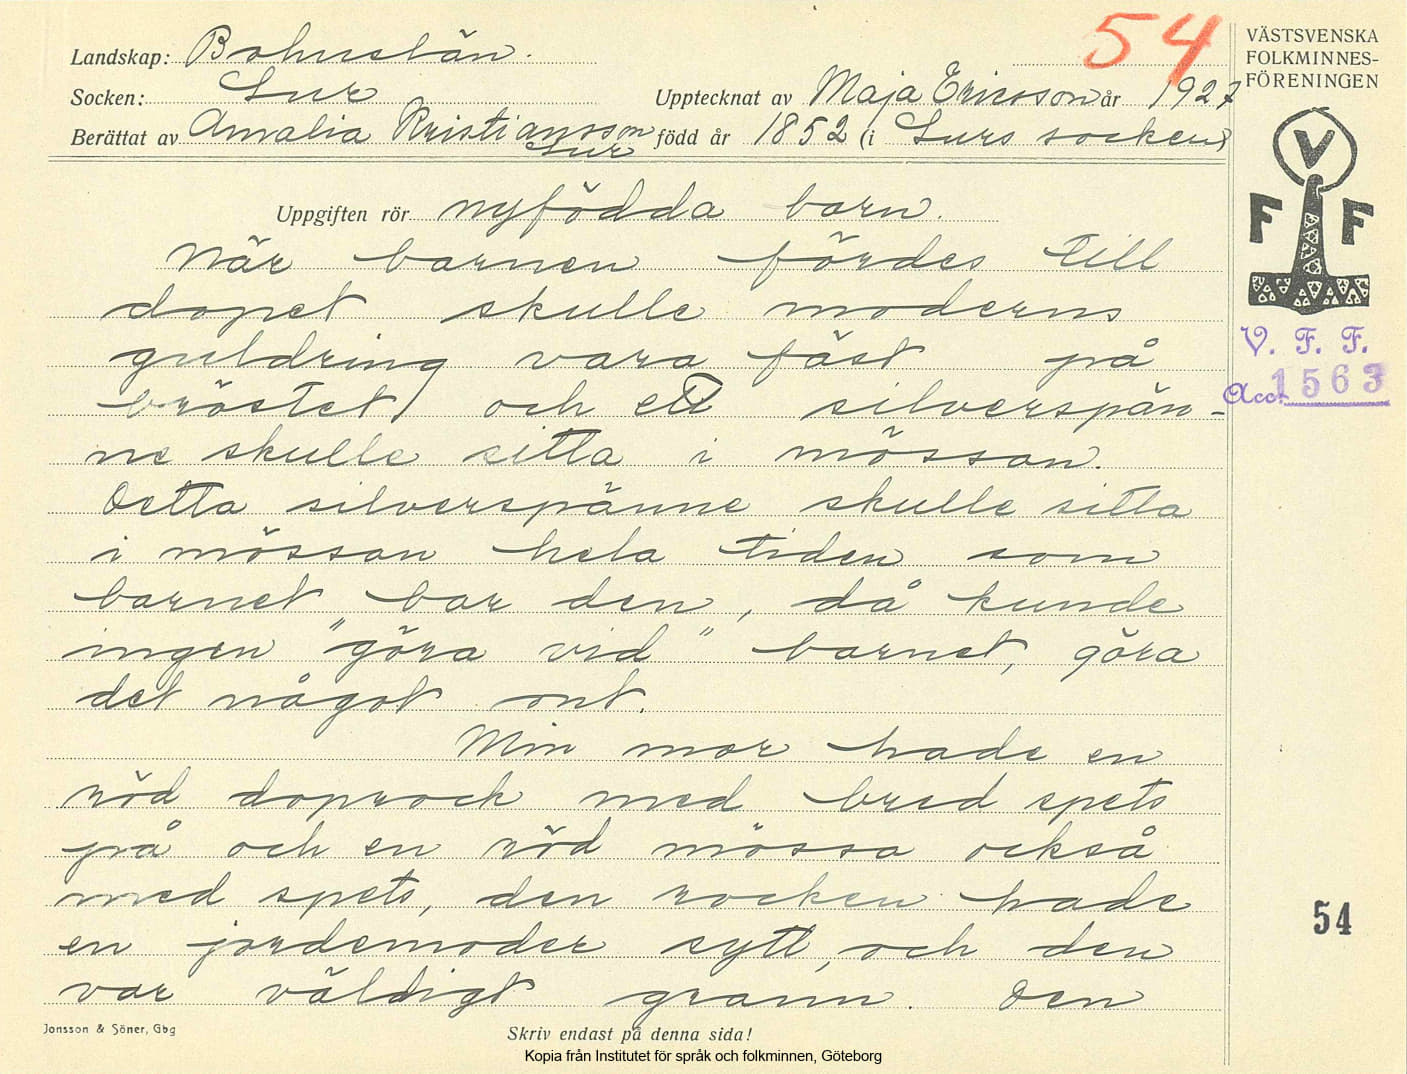 54
Landskap: Bohuslän.
Socken: Lur
Upptecknat av Maja Ericsson år 1927
Berättat av Amalia Kristiansson född år 1852 (i Lurs socken)
Lur
VÄSTSVENSKA
FOLKMINNES-
FÖRENINGEN
V
F F
V. F. F.
Acc. 1563
Uppgiften rör nyfödda barn.
När barnen fördes till
dopet skulle moderns
guldring vara fäst på
bröstet och ett silverspän-
ne skulle sitta i mössan.
Detta silverspänne skulle sitta
i mössan hela tiden som
barnet bar den, då kunde
ingen "göra vid" barnet, göra
det något ont.
Min mor hade en
röd doprock med bred spets
på och en röd mössa också
med spets, den rocken hade
en jordemoder sytt, och den
var väldigt grann. Den
54
Jonsson & Söner, Gbg
Skriv endast på denna sida!
Kopia från Institutet för språk och folkminnen, Göteborg